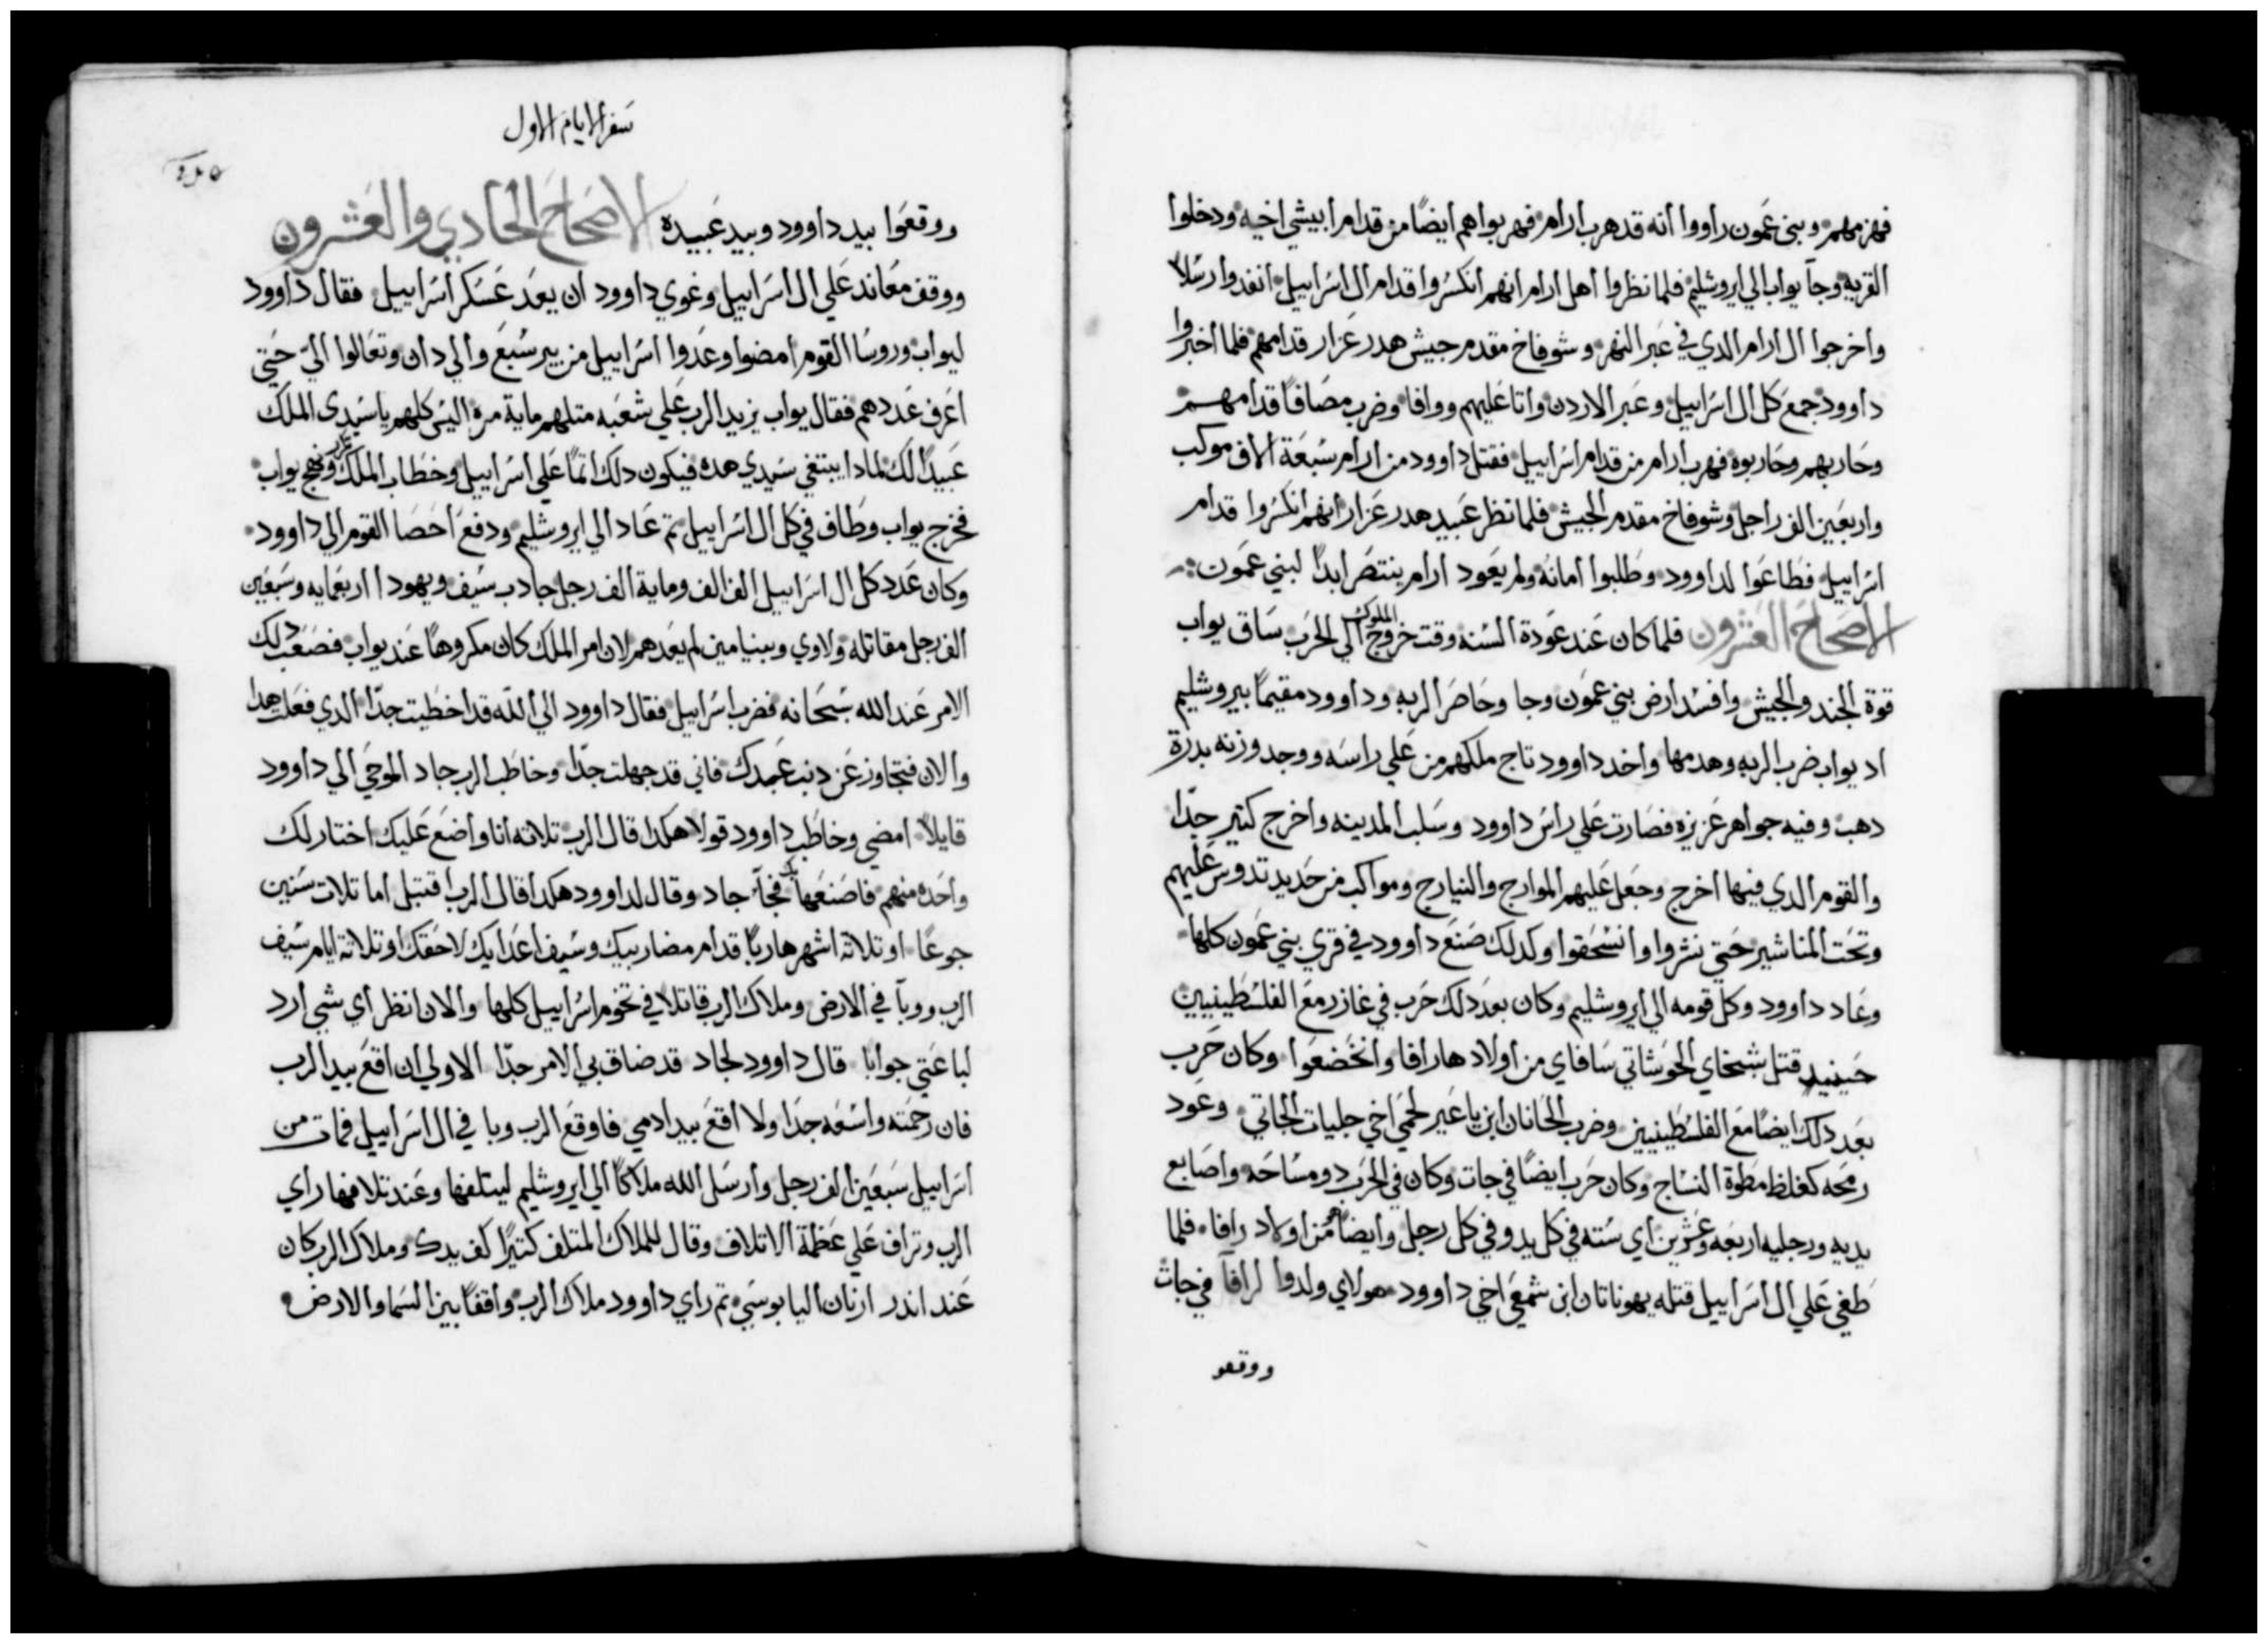 فهزمهم وبني عمون راووا انه قد هرب ارام فهربوا هم ايضًا من قدام ابيشي اخيه ودخلوا
القرية وجآ يواب الي ايروشليم فلما نظروا اهل ارام انهم انكسروا قدام ال اسراييل انفدوا رسلًا
واخرجوا ال ارام الدي في عبر النهر وشوفاخ مقدم جيش هدرعزار قدامهم فلما اخبروا
داوود جمع كل ال اسراييل وعبر الاردن واتا عليهم ووافا وضرب مصافًا قدامهم
وحاربهم وحاربوه فهرب ارام من قدام اسراييل فقتل داوود من ارام سبعة الاف موكب
واربعين الف راجل وشوفاخ مقدم الجيش فلما نظر عبيد هدرعزار انهم انكسروا قدام
اسراييل فطاعوا لداوود وطلبوا امانه ولم يعود ارام ينتصر ابدًا لبني عمون
الاصحاح العشرون فلما كان عند عودة السنه وقت خروج الملوك الي الحرب ساق يواب
قوة الجند والجيش وافسد ارض بني عمون وجا وحاصر الربه وداوود مقيمًا بيروشليم
اد يواب ضرب الربه وهدمها واخد داوود تاج ملكهم من علي راسه ووجد وزنه بدرة
دهب وفيه جواهر عزيزه فصارت علي راس داوود وسلب المدينه واخرج كتير جدًا
والقوم الدي فيها اخرج وجعل عليهم الموارج والنيارج ومواكب من حديد تدوس عليهم
وتحت المناشير حتي نشروا وانسحقوا وكدلك صنع داوود في قري بني عمون كلها
وعاد داوود وكل قومه الي ايروشليم وكان بعد دلك حرب في غازر مع الفلسطينيين
حينيد قتل شبخاي الحوشاتي سافاي من اولاد هارافا وانخضعوا وكان حرب
بعد دلك ايضًا مع الفلسطينيين وضرب الحانان ابن ياعير لحمي اخي جليات الجاتي وعود
رمحه كغلظ مطوة النساج وكان حرب ايضًا في جات وكان في الحرب دو مساحه واصابع
يديه ورجليه اربعه وعشرين اي سته في كل يد وفي كل رجل وايضًا من اولاد رافا فلما
طغي علي ال اسراييل قتله يهوناتان ابن شمعي اخي داوود هولاي ولدوا لرافآ في جات
ووقعو
سفر الايام الاول
ووقعوا بيد داوود وبيد عبيده الاصحاح الحادي والعشرون
ووقف معاند علي ال اسراييل وغوي داوود ان يعد عسكر اسراييل فقال داوود
ليواب وروسا القوم امضوا وعدوا اسراييل من بير سبع والي دان وتعالوا اليّ حتي
اعرف عددهم فقال يواب يزيد الرب علي شعبه متلهم ماية مرة اليس كلهم يا سيدي الملك
عبيدًا لك لمادا يبتغي سيدي هده فيكون دلك اتمًا علي اسراييل وخطاب الملك نهج يواب
فخرج يواب وطاف في كل ال اسراييل تم عاد الي ايروشليم ودفع احصا القوم الي داوود
وكان عدد كل ال اسراييل الف الف وماية الف رجل جادب سيف ويهودا اربعمايه وسبعين
الف رجل مقاتله ولاوي وبنيامين لم يعدهم لان امر الملك كان مكروهًا عند يواب فصعب دلك
الامر عند الله سبحانه فضرب اسراييل فقال داوود الي الله قد اخطيت جدًا الدي فعلت هدا
والان فتجاوز عن دنب عبدك فاني قد جهلت جدًا وخاطب الرب جاد الموحي الي داوود
قايلًا امضي وخاطب داوود قولا هكدا قال الرب تلاته انا واضع عليك اختار لك
واحده منهم فاصنعها بك فجآ جاد وقال لداوود هكدا قال الرب اقتبل اما تلات سنين
جوعًا او تلاتة اشهر هاربًا قدام مضاربيك وسيف اعدايك لاحقك او تلاتة ايام سيف
الرب ووبآ في الارض وملاك الرب قاتلا في تخوم اسراييل كلها والان انظر اي شي ارد
لباعتي جوابًا قال داوود لجاد قد ضاق بي الامر جدًا الاولي ان اقع بيد الرب
فان رحمته واسعه جدًا ولا اقع بيد ادمي فاوقع الرب وبا في ال اسراييل فمات من
اسراييل سبعين الف رجل وارسل الله ملاكًا الي ايروشليم ليتلفها وعند تلافها راي
الرب وتراف علي عظمة الاتلاف وقال للملاك المتلف كتيرًا كف يدك وملاك الرب كان
عند اندر ارنان اليابوسي تم راي داوود ملاك الرب واقفًا بين السما والارض